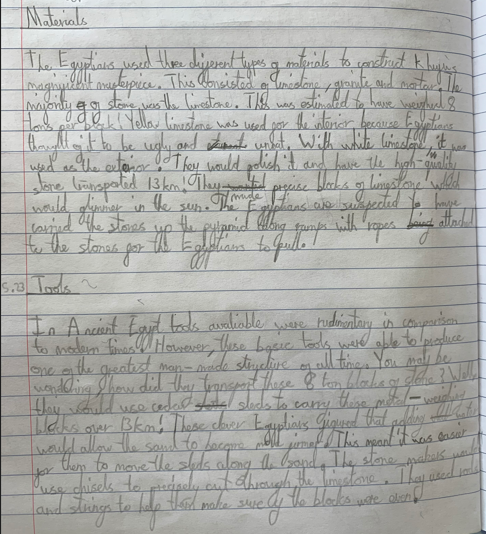 Materials
The Egyptians used three different types of materials to construct Khufu's
magnificent masterpiece. This consisted of limestone, granite and mortar. The
majority of of stone was the limestone. This was estimated to have weighed 8
tons per block! Yellow limestone was used for the interior because Egyptians
thought of it to be ugly and unfit. With white limestone, it was
used as the exterior. They would polish it and have the high-quality
stone transported 13km! They made precise blocks of limestone would
would glimmer in the sun. The Egyptians are suspected to have
carried the stones up the pyramid along ramps with ropes attached
to the stones for the Egyptians to pull.
5.23 Tools ~
In Ancient Egypt tools avaliable were rudimentary in comparison
to modern times. However, these basic tools were able to produce
one of the greatest man-made structure of all time. You may be
wondering, how did they transport these 8 ton blocks of stone? Well,
they would use cedar sleds to carry these metal-weighing
blocks over 13km! These clever Egyptians figured that adding water
would allow the sand to become more firmer. This meant it was easier
for them to move the sleds along the sand. The stone makers would
use chisels to precisely cut through the limestone. They used rods
and strings to help them make sure if the blocks were even.